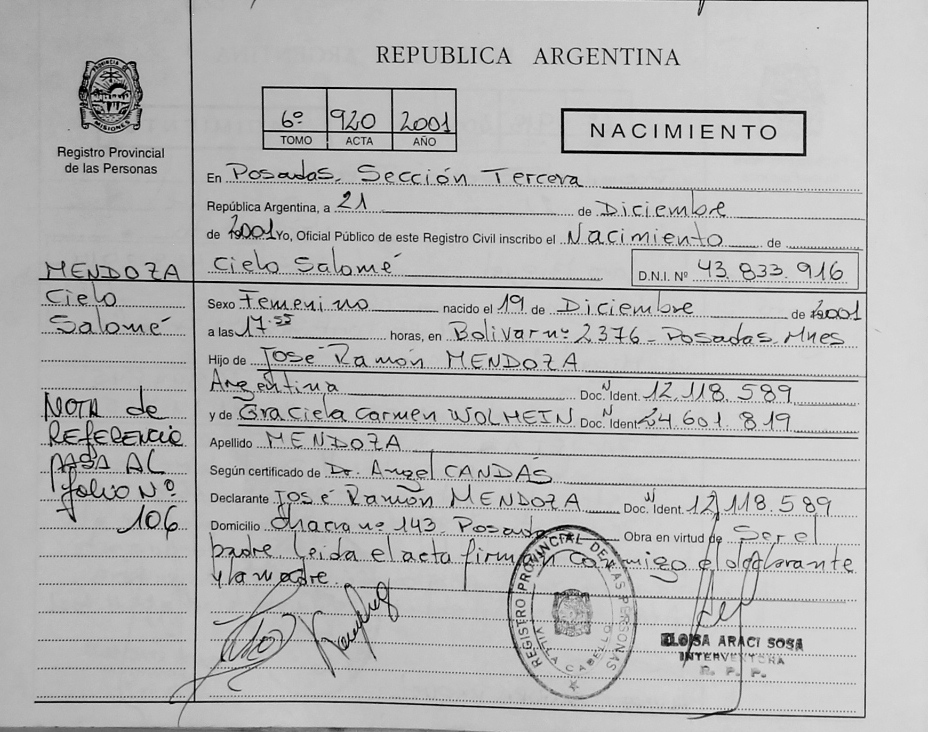 REPUBLICA ARGENTINA
PROVINCIA DE MISIONES
Registro Provincial
de las Personas
6º 920 2001
TOMO ACTA AÑO
NACIMIENTO
En Posadas Sección Tercera
República Argentina, a 21 de Diciembre
de 2001 Yo, Oficial Público de este Registro Civil inscribo el Nacimiento de
Cielo Salomé D.N.I. Nº 43.833.916
MENDOZA
Cielo
Salomé
Sexo Femenino nacido el 19 de Diciembre de 2001
a las 17.55 horas, en Bolivar nº 2376 - Posadas. Mnes
Hijo de José Ramón MENDOZA
Argentina Doc. Ident. 12.118.589
y de Graciela Carmen WOLHEIN Doc. Ident. 24.601.819
Apellido MENDOZA
Según certificado de Dr. Angel CANDÁS
Declarante José Ramón MENDOZA Doc. Ident. 12.118.589
Domicilio Chacra nº 143. Posadas Obra en virtud de Ser el
padre. Leida el acta firman conmigo el declarante
y la madre
NOTA de
REFERENCIA
PASA AL
folio Nº
106
REGISTRO PROVINCIAL DE LAS PERSONAS
VILLA CABELLO
ELOISA ARACI SOSA
INTERVENTORA
R. P. P.